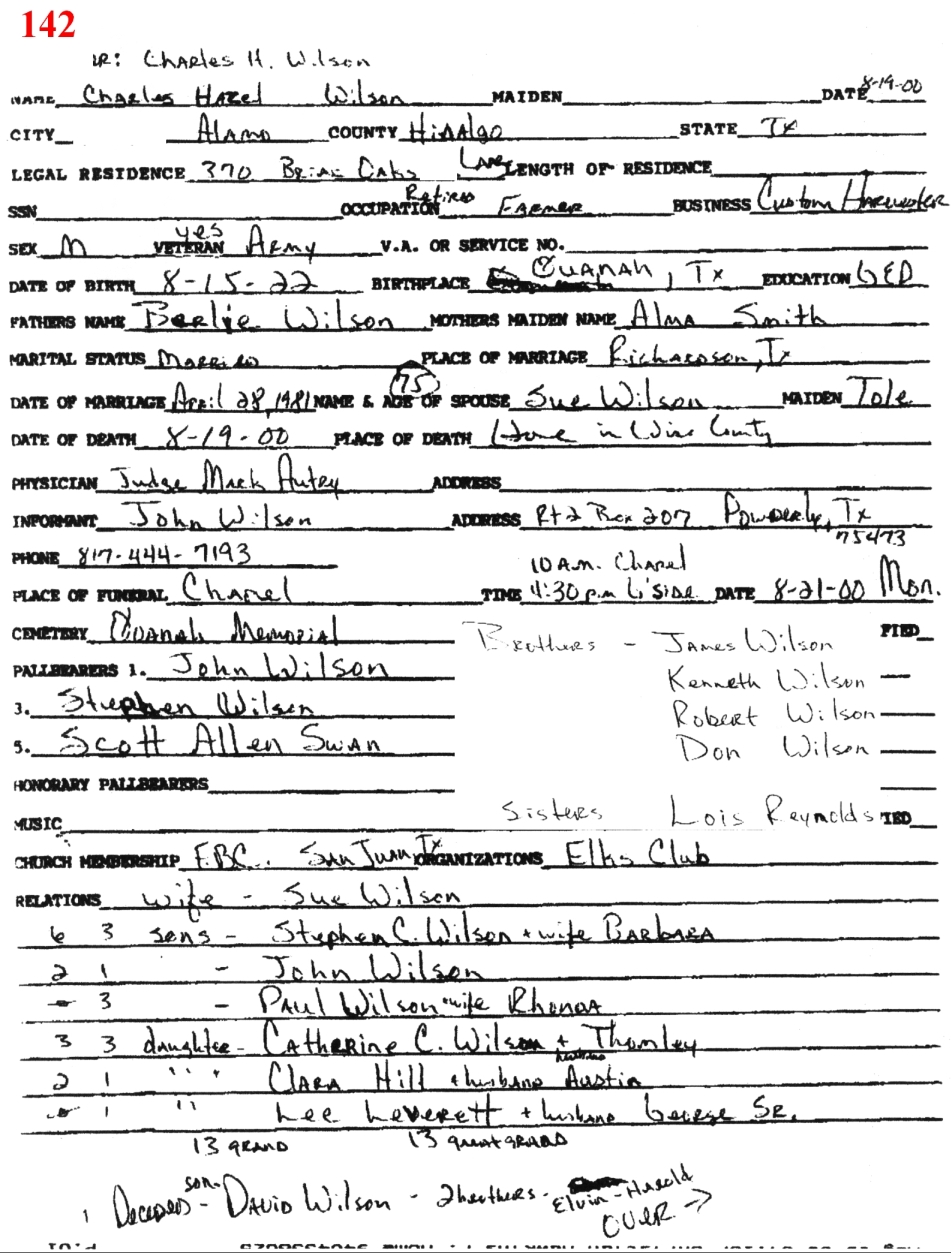 142
IR: Charles H. Wilson
NAME Charles Hazel Wilson MAIDEN DATE 8-19-00
CITY Alamo COUNTY Hidalgo STATE Tx
LEGAL RESIDENCE 370 Briar Oaks Lane LENGTH OF RESIDENCE
SSN OCCUPATION Retired Farmer BUSINESS Custom Harvester
SEX M VETERAN yes Army V.A. OR SERVICE NO.
DATE OF BIRTH 8-15-22 BIRTHPLACE Quanah, Tx EDUCATION GED
FATHERS NAME Berlie Wilson MOTHERS MAIDEN NAME Alma Smith
MARITAL STATUS Married PLACE OF MARRIAGE Richardson, Tx
DATE OF MARRIAGE April 28, 1981 NAME & AGE OF SPOUSE (75) Sue Wilson MAIDEN Tole
DATE OF DEATH 8-19-00 PLACE OF DEATH Home in Wise County
PHYSICIAN Judge Mark Autry ADDRESS
INFORMANT John Wilson ADDRESS Rt 2 Box 207 Powderly, Tx 75473
PHONE 817-444-7193
10 A.M. Chapel
PLACE OF FUNERAL Chapel TIME 4:30 p.m G'Side DATE 8-21-00 Mon.
CEMETERY Quanah Memorial Brothers - James Wilson FIED
PALLBEARERS 1. John Wilson Kenneth Wilson
3. Stephen Wilson Robert Wilson
5. Scott Allen Swan Don Wilson
HONORARY PALLBEARERS
MUSIC Sisters Lois Reynolds IED
CHURCH MEMBERSHIP F.B.C. San Juan Tx ORGANIZATIONS Elks Club
RELATIONS wife - Sue Wilson
6 3 sons - Stephen C. Wilson + wife Barbara
2 1 - John Wilson
3 - Paul Wilson + wife Rhonda
3 3 daughter - Catherine C. Wilson + husband Thomley
2 1 " " Clara Hill + husband Austin
1 " Lee Leverett + husband George Sr.
13 grand 13 great grand
1 Deceased son - David Wilson - 2 brothers - Elvin - Harold
OVER →